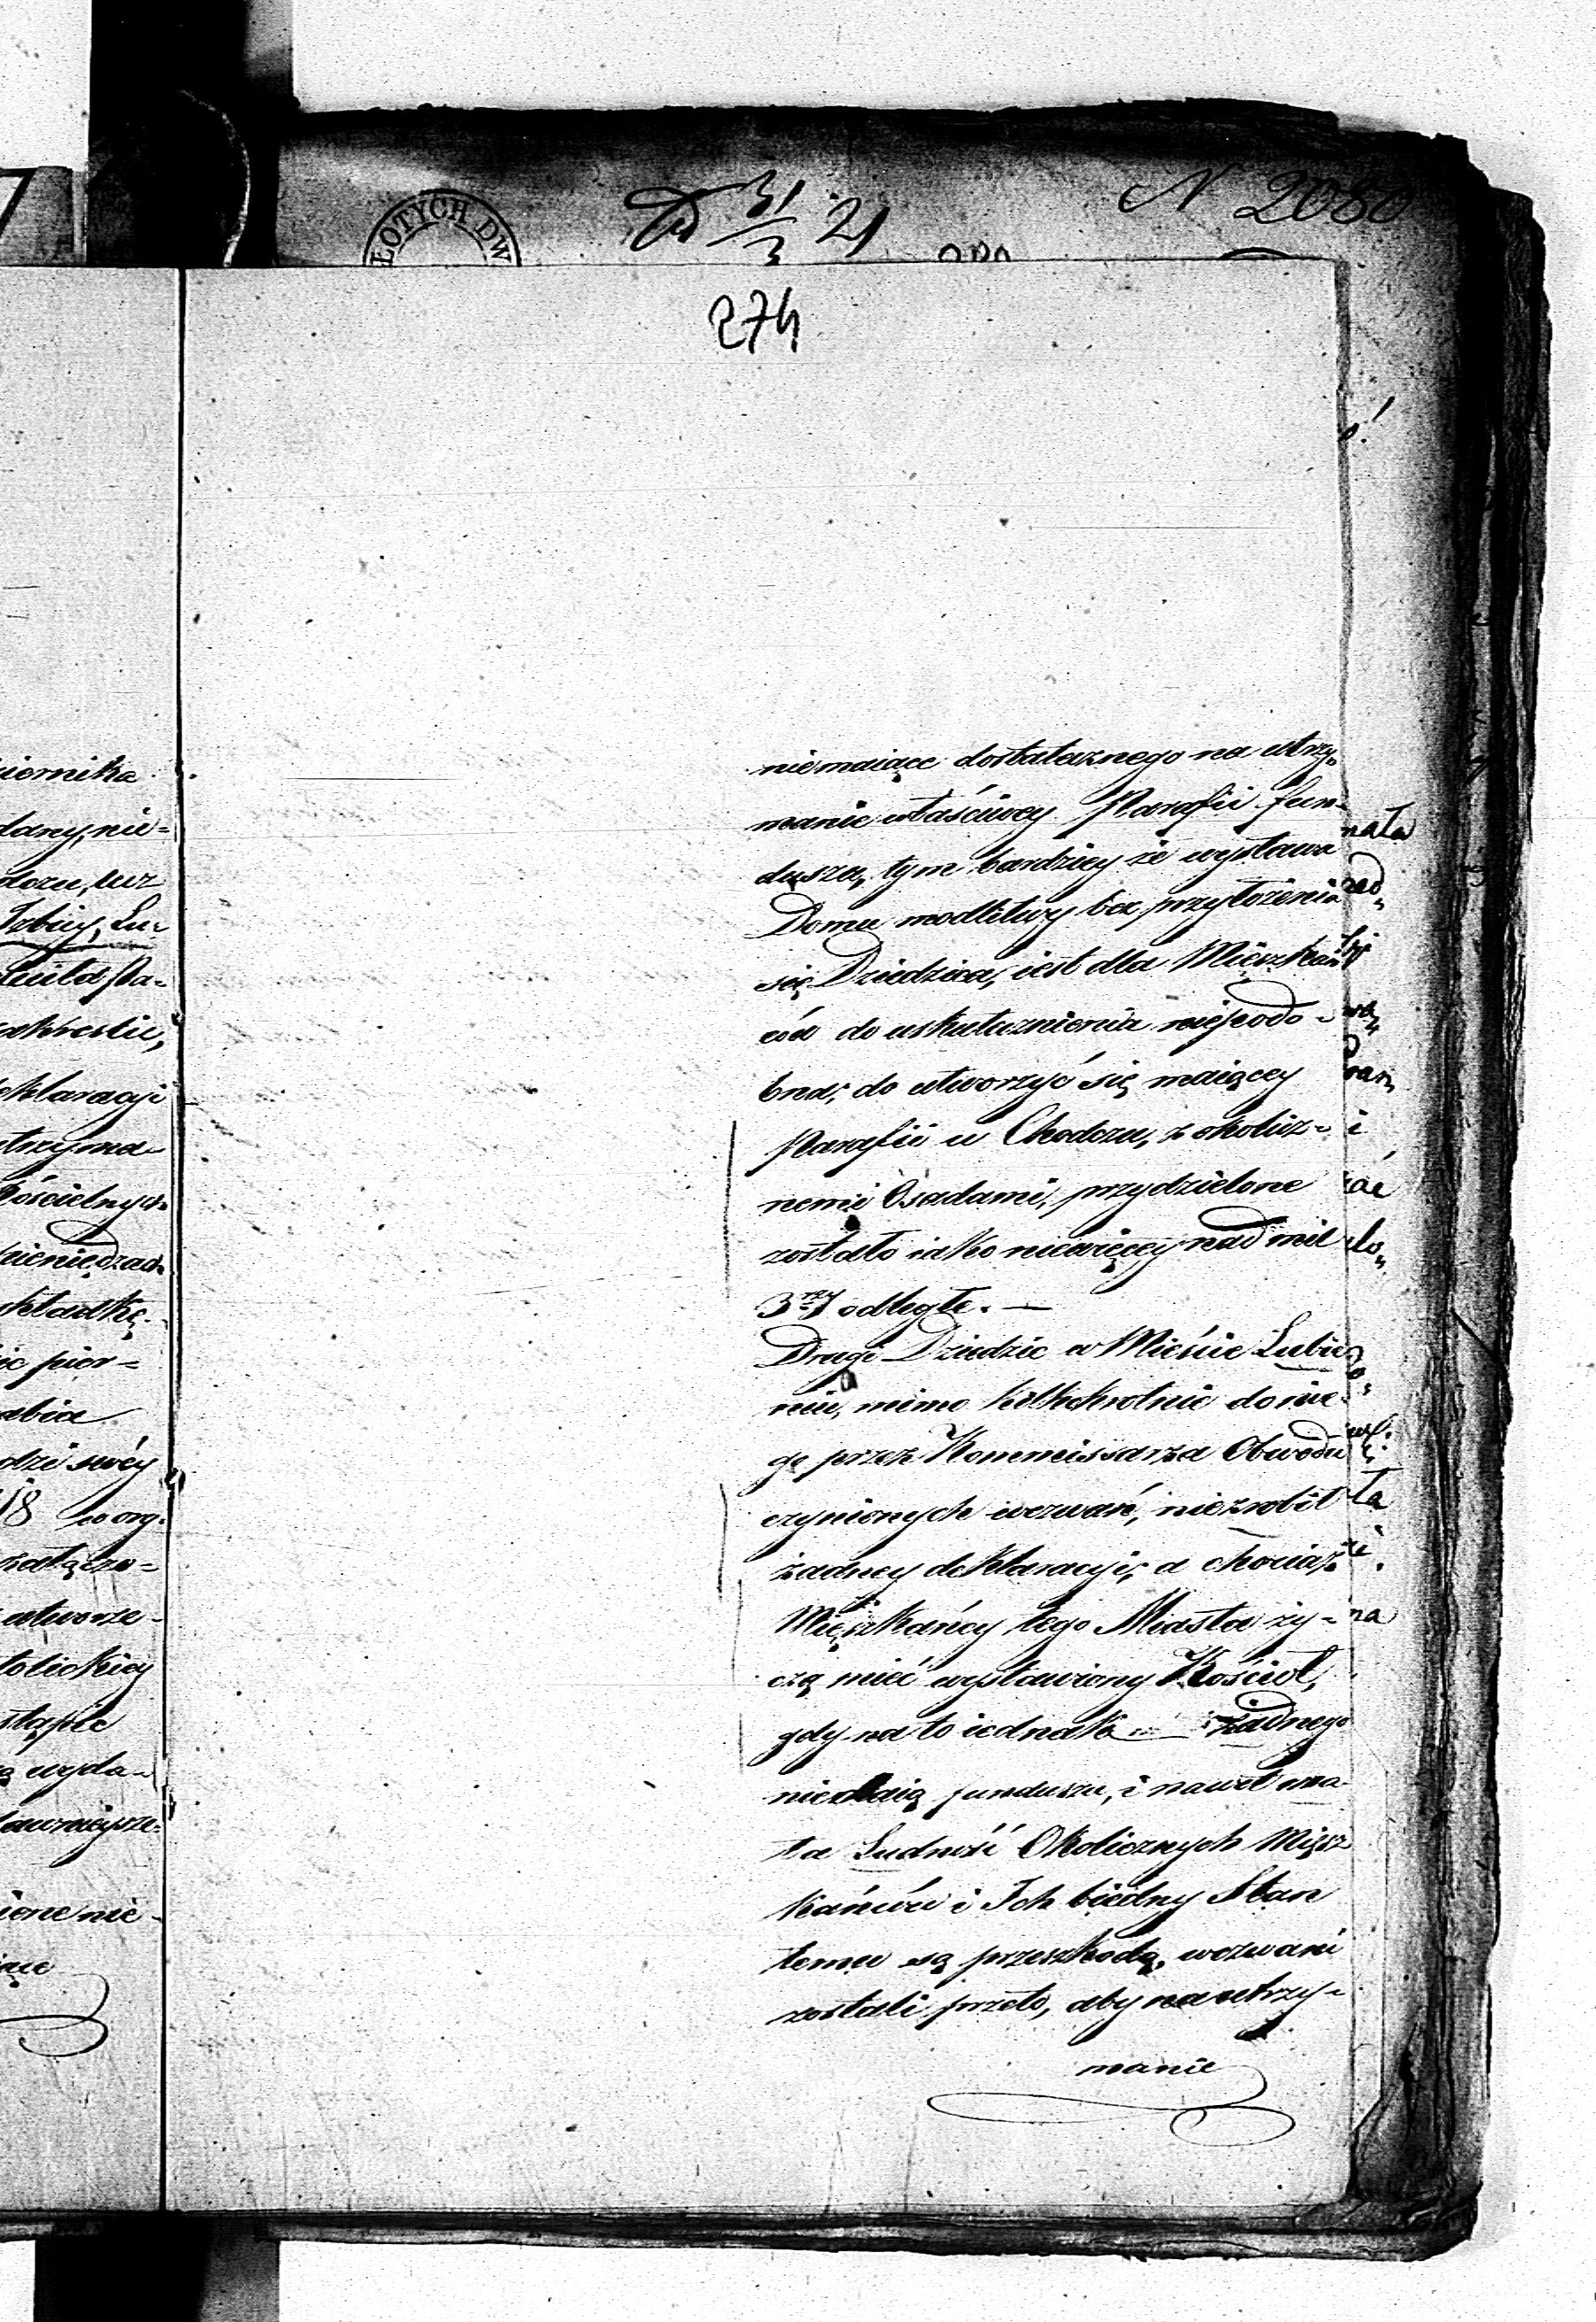 7
ŁOTYCH DW
31/3 21
N 2080
274
niemaiące dostatecznego na utrzy-
manie właściwey Parafii fun-
duszu, tym bardziey że wystawa
Domu modlitwy bez przyłożenia
się Dziedzica, iest dla Mieszkań
ców do uskutecznienia niepodo-
bna; do utworzyć się maiącey
Parafii w Chodczu, z okolicz-
nemi Osadami, przydzielone
zostało iako niewięcey nad mil
3ry odległe. —
Drugi Dziedzic w Mieście Lubie
niu, mimo kilkokrotnie do nie-
go przez Kommissarza Obwodu
czynionych wezwań, niezrobił
żadney deklaracyi, a chociaż
Mieszkańcy tego Miasta ży-
czą mieć wystawiony Kościół,
gdy na to iednak żadnego
niemaią funduszu, i nawet ma-
ła Ludność Okolicznych Miesz
kańców i Ich biedny Stan
temu są przeszkodą, wezwani
zostali przeto, aby na utrzy-
manie
iernika
dany, nie-
Izbicy, Lu-
klaracyi
utrzyma-
kościelnych
pieniędzach
składkę
pier-
18 w org.
utworze-
tolickiey
wyda-
nała